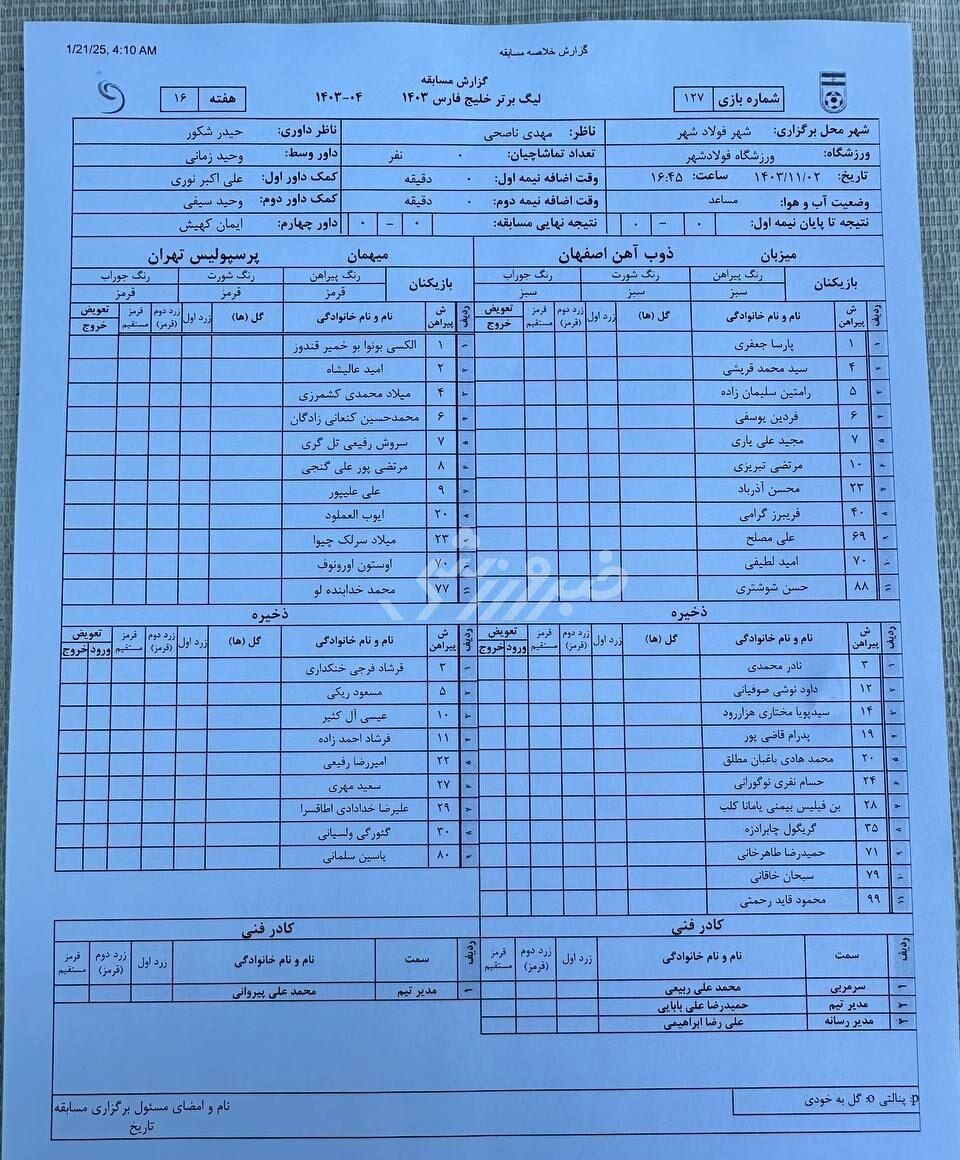 1/21/25, 4:10 AM گزارش خلاصه مسابقه
گزارش مسابقه
شماره بازی ۱۲۷ لیگ برتر خلیج فارس ۱۴۰۳ ۱۴۰۳-۰۴ هفته ۱۶
شهر محل برگزاری: شهر فولاد شهر ناظر: مهدی ناصحی ناظر داوری: حیدر شکور
ورزشگاه: ورزشگاه فولادشهر تعداد تماشاچیان: ۰ نفر داور وسط: وحید زمانی
تاریخ: ۱۴۰۳/۱۱/۰۲ ساعت: ۱۶:۴۵ وقت اضافه نیمه اول: ۰ دقیقه کمک داور اول: علی اکبر نوری
وضعیت آب و هوا: مساعد وقت اضافه نیمه دوم: ۰ دقیقه کمک داور دوم: وحید سیفی
نتیجه تا پایان نیمه اول: ۰ – ۰ نتیجه نهایی مسابقه: ۰ – ۰ داور چهارم: ایمان کهیش
میزبان ذوب آهن اصفهان میهمان پرسپولیس تهران
بازیکنان رنگ پیراهن رنگ شورت رنگ جوراب بازیکنان رنگ پیراهن رنگ شورت رنگ جوراب
سبز سبز سبز قرمز قرمز قرمز
ردیف ش پیراهن نام و نام خانوادگی گل (ها) زرد اول زرد دوم (قرمز) قرمز مستقیم تعویض خروج ردیف ش پیراهن نام و نام خانوادگی گل (ها) زرد اول زرد دوم (قرمز) قرمز مستقیم تعویض خروج
۱ ۱ پارسا جعفری ۱ ۱ الکسی بونوا بو خمیر قندوز
۲ ۴ سید محمد قریشی ۲ ۲ امید عالیشاه
۳ ۵ رامتین سلیمان زاده ۳ ۴ میلاد محمدی کشمرزی
۴ ۶ فردین یوسفی ۴ ۶ محمدحسین کنعانی زادگان
۵ ۷ مجید علی یاری ۵ ۷ سروش رفیعی تل گری
۶ ۱۰ مرتضی تبریزی ۶ ۸ مرتضی پور علی گنجی
۷ ۲۳ محسن آذرباد ۷ ۹ علی علیپور
۸ ۴۰ فریبرز گرامی ۸ ۲۰ ایوب العملود
۹ ۶۹ علی مصلح ۹ ۲۳ میلاد سرلک چیوا
۱۰ ۷۰ امید لطیفی ۱۰ ۷۰ اوستون اورونوف
۱۱ ۸۸ حسن شوشتری ۱۱ ۷۷ محمد خدابنده لو
خبرورزشی
ذخیره ذخیره
ردیف ش پیراهن نام و نام خانوادگی گل (ها) زرد اول زرد دوم (قرمز) قرمز مستقیم تعویض ورود خروج ردیف ش پیراهن نام و نام خانوادگی گل (ها) زرد اول زرد دوم (قرمز) قرمز مستقیم تعویض ورود خروج
۱ ۳ نادر محمدی ۱ ۳ فرشاد فرجی خنکداری
۲ ۱۲ داود نوشی صوفیانی ۲ ۵ مسعود ریکی
۳ ۱۴ سیدپویا مختاری هزاررود ۳ ۱۰ عیسی آل کثیر
۴ ۱۹ پدرام قاضی پور ۴ ۱۱ فرشاد احمد زاده
۵ ۲۰ محمد هادی باغبان مطلق ۵ ۲۲ امیررضا رفیعی
۶ ۲۴ حسام نفری نوگورانی ۶ ۲۷ سعید مهری
۷ ۲۸ بن فیلیس بیمنی یامانا کلب ۷ ۲۹ علیرضا خدادادی اطاقسرا
۸ ۳۵ گریگول چابرادزه ۸ ۳۰ گئورگی ولسیانی
۹ ۷۱ حمیدرضا طاهرخانی ۹ ۸۰ یاسین سلمانی
۱۰ ۷۹ سبحان خاقانی
۱۱ ۹۹ محمود قاید رحمتی
کادر فنی کادر فنی
ردیف سمت نام و نام خانوادگی زرد اول زرد دوم (قرمز) قرمز مستقیم ردیف سمت نام و نام خانوادگی زرد اول زرد دوم (قرمز) قرمز مستقیم
۱ سرمربی محمد علی ربیعی ۱ مدیر تیم محمد علی پیروانی
۲ مدیر تیم حمیدرضا علی بابایی
۳ مدیر رسانه علی رضا ابراهیمی
p: پنالتی o: گل به خودی
نام و امضای مسئول برگزاری مسابقه
تاریخ